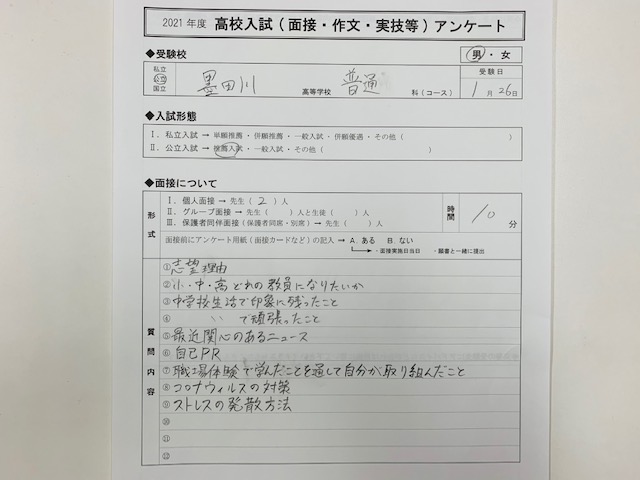 2021年度 高校入試(面接・作文・実技等)アンケート
◆受験校
男・女
私立
公立
国立
墨田川 高等学校 普通 科(コース)
受験日
1月26日
◆入試形態
Ⅰ. 私立入試 → 単願推薦・併願推薦・一般入試・併願優遇・その他( )
Ⅱ. 公立入試 → 推薦入試・一般入試・その他( )
◆面接について
形式
Ⅰ. 個人面接 → 先生( 2 )人
Ⅱ. グループ面接 → 先生( )人と生徒( )人
Ⅲ. 保護者同伴面接(保護者同席・別席) → 先生( )人
時間
10分
面接前にアンケート用紙(面接カードなど)の記入 → A. ある B. ない
・面接実施日当日 ・願書と一緒に提出
質問内容
①志望理由
②小・中・高どれの教員になりたいか
③中学校生活で印象に残ったこと
④ 〃 で頑張ったこと
⑤最近関心のあるニュース
⑥自己PR
⑦職場体験で学んだことを通して自分が取り組んだこと
⑧コロナウィルスの対策
⑨ストレスの発散方法
⑩
⑪
⑫